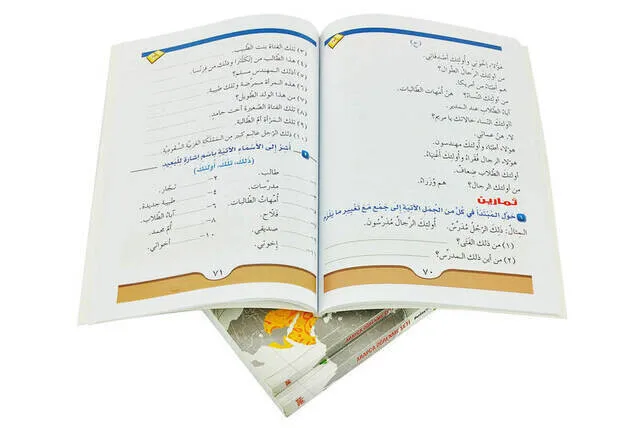 (ج)
هؤلاء إخوتي وأولئك أصدقائي.
من أولئك الرجال الطوال؟
هم أطباء من أمريكا.
من أولئك النساء؟ هن أمهات الطالبات.
أولئك الطلاب عند المدير.
أولئك النساء خالاتك يا مريم؟
لا. هن عماتي.
هؤلاء أطباء وأولئك مهندسون.
هؤلاء الرجال فقراء وأولئك أغنياء.
أولئك الطلاب ضعاف.
من أولئك الرجال؟ هم وزراء.
تمارين
١ حول المبتدأ في كل من الجمل الآتية إلى جمع مع تغيير ما يلزم
المثال: ذلك الرجل مدرس. أولئك الرجال مدرسون.
(١) من ذلك الفتى؟
(٢) من أين ذلك المدرس؟
٧٠
(٣) تلك الفتاة بنت الطبيب.
(٤) هذا الطالب من إنكلترا وذلك من فرنسا.
(٥) أذلك المهندس مسلم؟
(٦) هذه المرأة ممرضة وتلك طبيبة.
(٧) من هذا الولد الطويل؟
(٨) تلك الفتاة الصغيرة أخت حامد.
(٩) تلك المرأة أم الطالبة.
(١٠) ذلك الرجل عالم كبير من المملكة العربية السعودية.
٢ أشر إلى الأسماء الآتية باسم إشارة للبعيد
(ذلك، تلك، أولئك)
طالب.
٢- نجار.
مدرسات.
٤- طبيبة جديدة.
أمهات الطالبات.
آباء الطلاب.
فلاح.
٨- أم محمد.
صديقي.
١٠- أخواتي.
إخوتي.
٧١
ARAPÇA ÖĞRENİM SETİ
ARAPÇA ÖĞRENİM SETİ